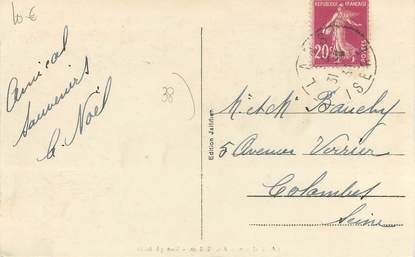 10 €
Amical
souvenirs
A. Noël
38
Edition Jallifier
REPUBLIQUE FRANÇAISE
20c
POSTES
Mr et Me Bauchy
5 Avenue Verrier
Colombes
Seine